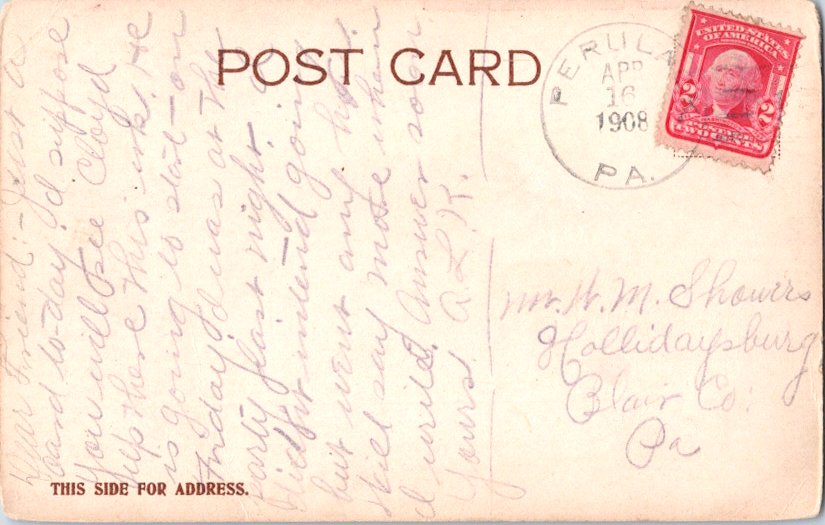 POST CARD
PERULA
APR
16
1908
PA.
UNITED STATES
OF AMERICA
2 2
TWO CENTS
Dear Friend:- Just a
card to-day. I suppose
You will see Cloyd
up there this week. He
is going to start on
Friday I was at the
party last night. I
didn't intend going
but went any how.
Will say more when
I write. Answer soon
Yours A.L.K.
Mr. H. M. Showers
Hollidaysburg
Blair Co.
Pa
THIS SIDE FOR ADDRESS.